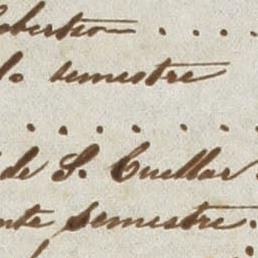 lo semestre
de S. Cuellar
nte semestre.